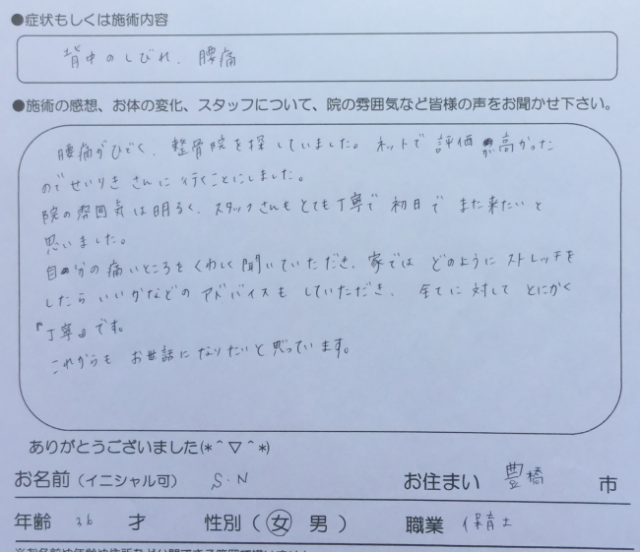 ●症状もしくは施術内容
背中のしびれ、腰痛
●施術の感想、お体の変化、スタッフについて、院の雰囲気など皆様の声をお聞かせ下さい。
腰痛がひどく、整骨院を探していました。ネットで評価が高かった
のでせいりきさんに行くことにしました。
院の雰囲気は明るく、スタッフさんもとても丁寧で初日でまた来たいと
思いました。
自分の痛いところをくわしく聞いていただき、家ではどのようにストレッチを
したらいいかなどのアドバイスもしていただき、全てに対してとにかく
『丁寧』です。
これからもお世話になりたいと思っています。
ありがとうございました(*＾▽＾*)
お名前（イニシャル可） S.N お住まい 豊橋 市
年齢 36 才 性別（ 女 男 ） 職業 保育士